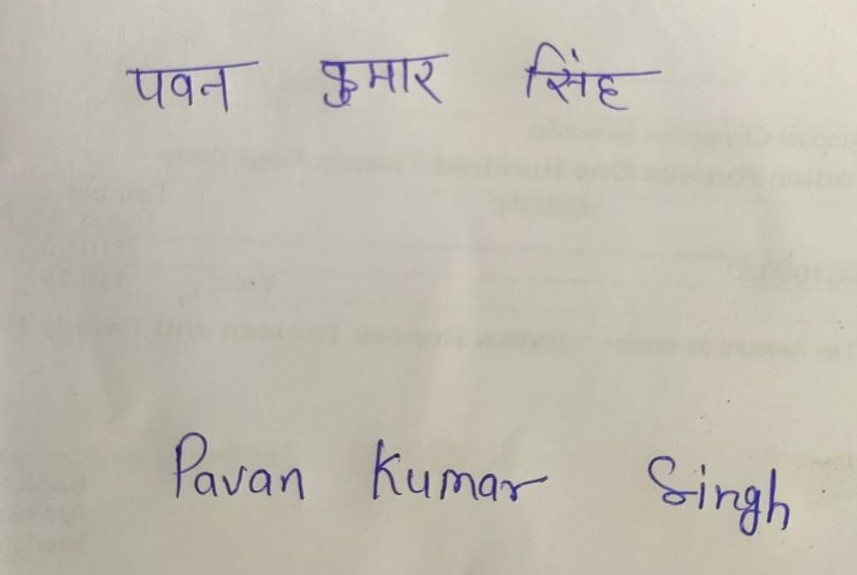 पवन कुमार सिंह
Pavan Kumar Singh